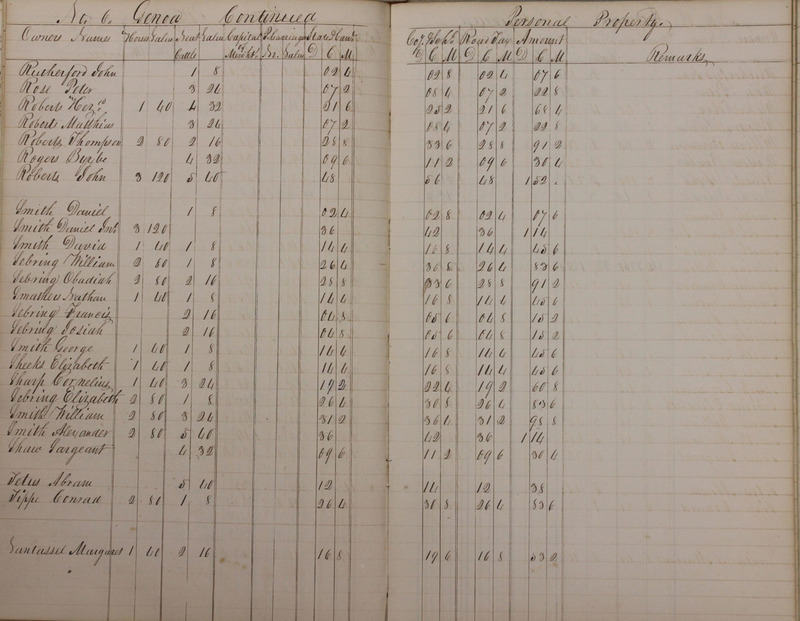 No. 6. Genoa Continued Personal Property.
Owners Names Horses Value Neat Cattle Value Capital in Merchts. Value State & Canal D C M Co. & School D C M Road Tax D C M Amount D C M Remarks
Rutherford John 1 8 02 4 02 8 02 4 07 6
Rose Peter 3 24 07 2 08 4 07 2 22 8
Roberts 1 40 4 32 21 6 25 2 21 6 68 4
Roberts Matthias 3 24 07 2 08 4 07 2 22 8
Roberts Thompson 2 80 2 16 28 8 33 6 28 8 91 2
Rogers 4 32 09 6 11 2 09 6 30 4
Roberts John 3 120 5 40 48 56 48 1 52 .
Smith Daniel 1 8 02 4 02 8 02 4 07 6
Smith Daniel Jnr. 3 120 36 42 36 1 14
Smith David 1 40 1 8 14 4 16 8 14 4 45 6
Sebring William 2 80 1 8 26 4 30 8 26 4 83 6
Sebring Obadiah 2 80 2 16 28 8 33 6 28 8 91 2
Smathers Nathan 1 40 1 8 14 4 16 8 14 4 45 6
Sebring Francis 2 16 04 8 05 6 04 8 15 2
Sebring Josiah 2 16 04 8 05 6 04 8 15 2
Smith George 1 40 1 8 14 4 16 8 14 4 45 6
Sheeks Elizabeth 1 40 1 8 14 4 16 8 14 4 45 6
Sharp Cornelius 1 40 3 24 19 2 22 4 19 2 60 8
Sebring Elizabeth 2 80 1 8 26 4 30 8 26 4 83 6
Smith William 2 80 3 24 31 2 36 4 31 2 98 8
Smith Alexander 2 80 5 40 36 42 36 1 14
Shaw Sargeant 4 32 09 6 11 2 09 6 30 4
Titus Abram 5 40 12 14 12 38
Tippe Conrad 2 80 1 8 26 4 30 8 26 4 83 6
Vantassel Margaret 1 40 2 16 16 8 19 6 16 8 53 2